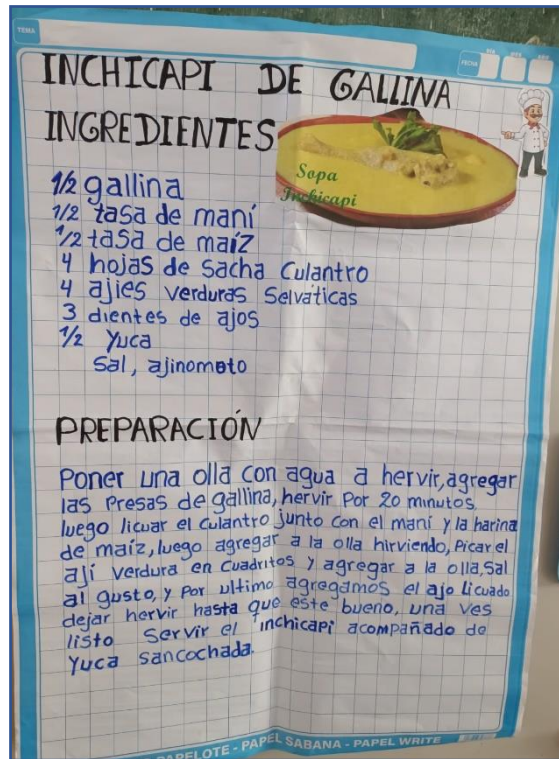 TEMA
FECHA
DÍA MES AÑO
INCHICAPI DE GALLINA
INGREDIENTES
Sopa
Inchicapi
1/2 gallina
1/2 tasa de maní
1/2 tasa de maíz
4 hojas de sacha culantro
4 ajies verduras selváticas
3 dientes de ajos
1/2 yuca
sal, ajinomoto
PREPARACIÓN
Poner una olla con agua a hervir, agregar
las presas de gallina, hervir por 20 minutos
luego licuar el culantro junto con el maní y la harina
de maíz, luego agregar a la olla hirviendo, picar el
ají verdura en cuadritos y agregar a la olla, sal
al gusto, y por ultimo agregamos el ajo licuado
dejar hervir hasta que este bueno, una ves
listo servir el inchicapi acompañado de
yuca sancochada.
PAPELOTE - PAPEL SABANA - PAPEL WRITE